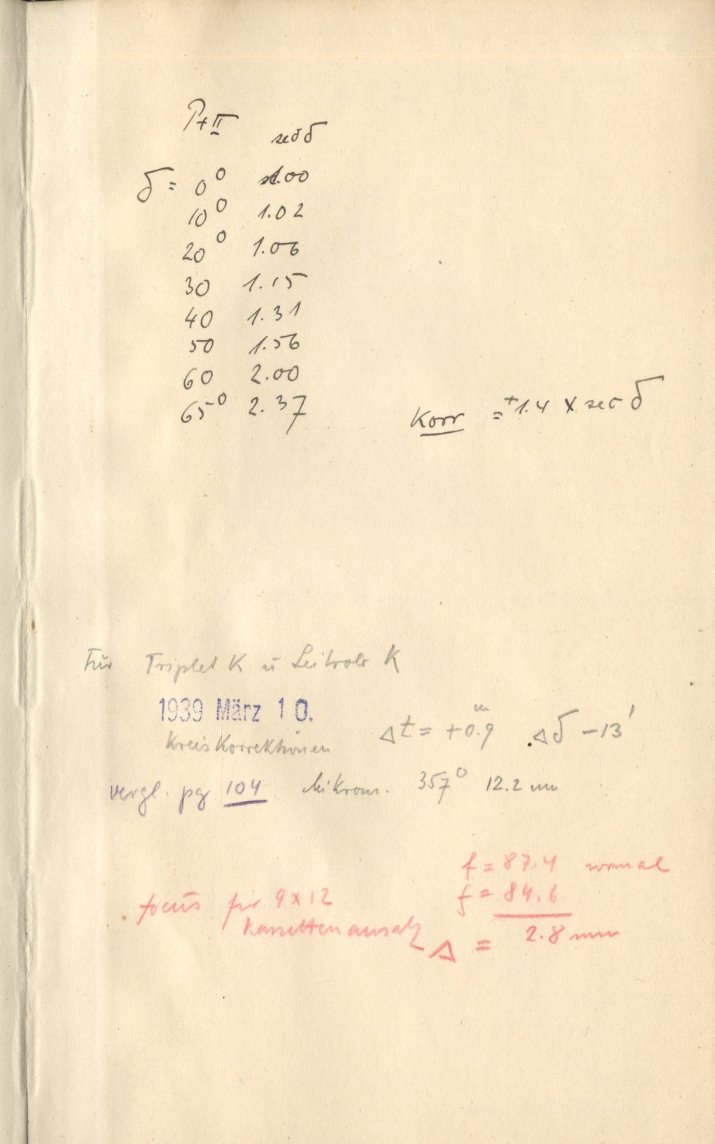 P+II
sec δ
δ = 0° 1.00
10° 1.02
20° 1.06
30 1.15
40 1.31
50 1.56
60 2.00
65° 2.37
Korr = +1.4 x sec δ
Für Triplet K u Leitrohr K
1939 März 10.
Kreis Korrektionen Δt = +0.9ᵐ Δδ -13'
vergl. pg 104 Mikrom. 357° 12.2 mm
f = 87.4 normal
focus für 9x12 f = 84.6
Kassettenansatz Δ = 2.8 mm